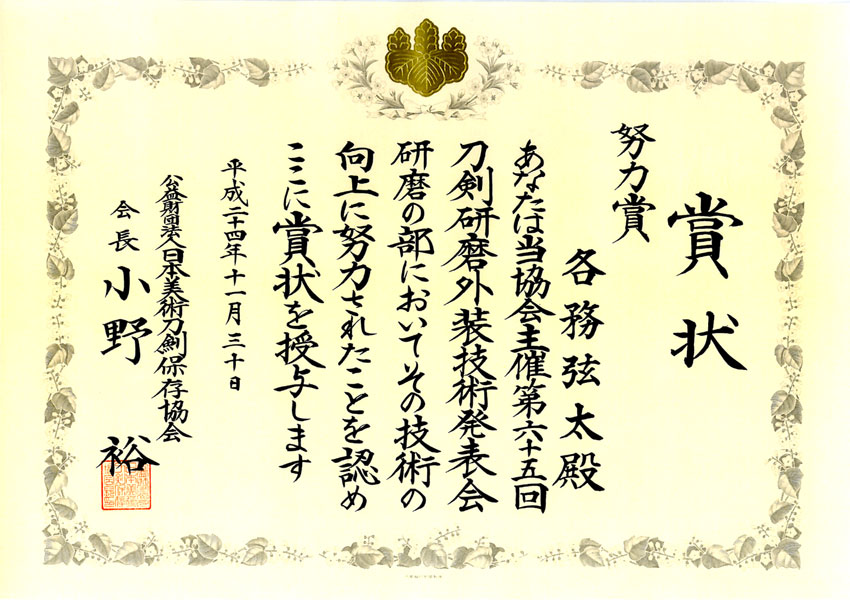 賞状
努力賞
各務弦太殿
あなたは当協会主催第六十五回
刀剣研磨外装技術発表会
研磨の部においてその技術の
向上に努力されたことを認め
ここに賞状を授与します
平成二十四年十一月三十日
公益財団法人日本美術刀劍保存協会
会長 小野裕